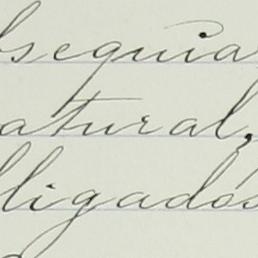 bsequia
atural,
lligados